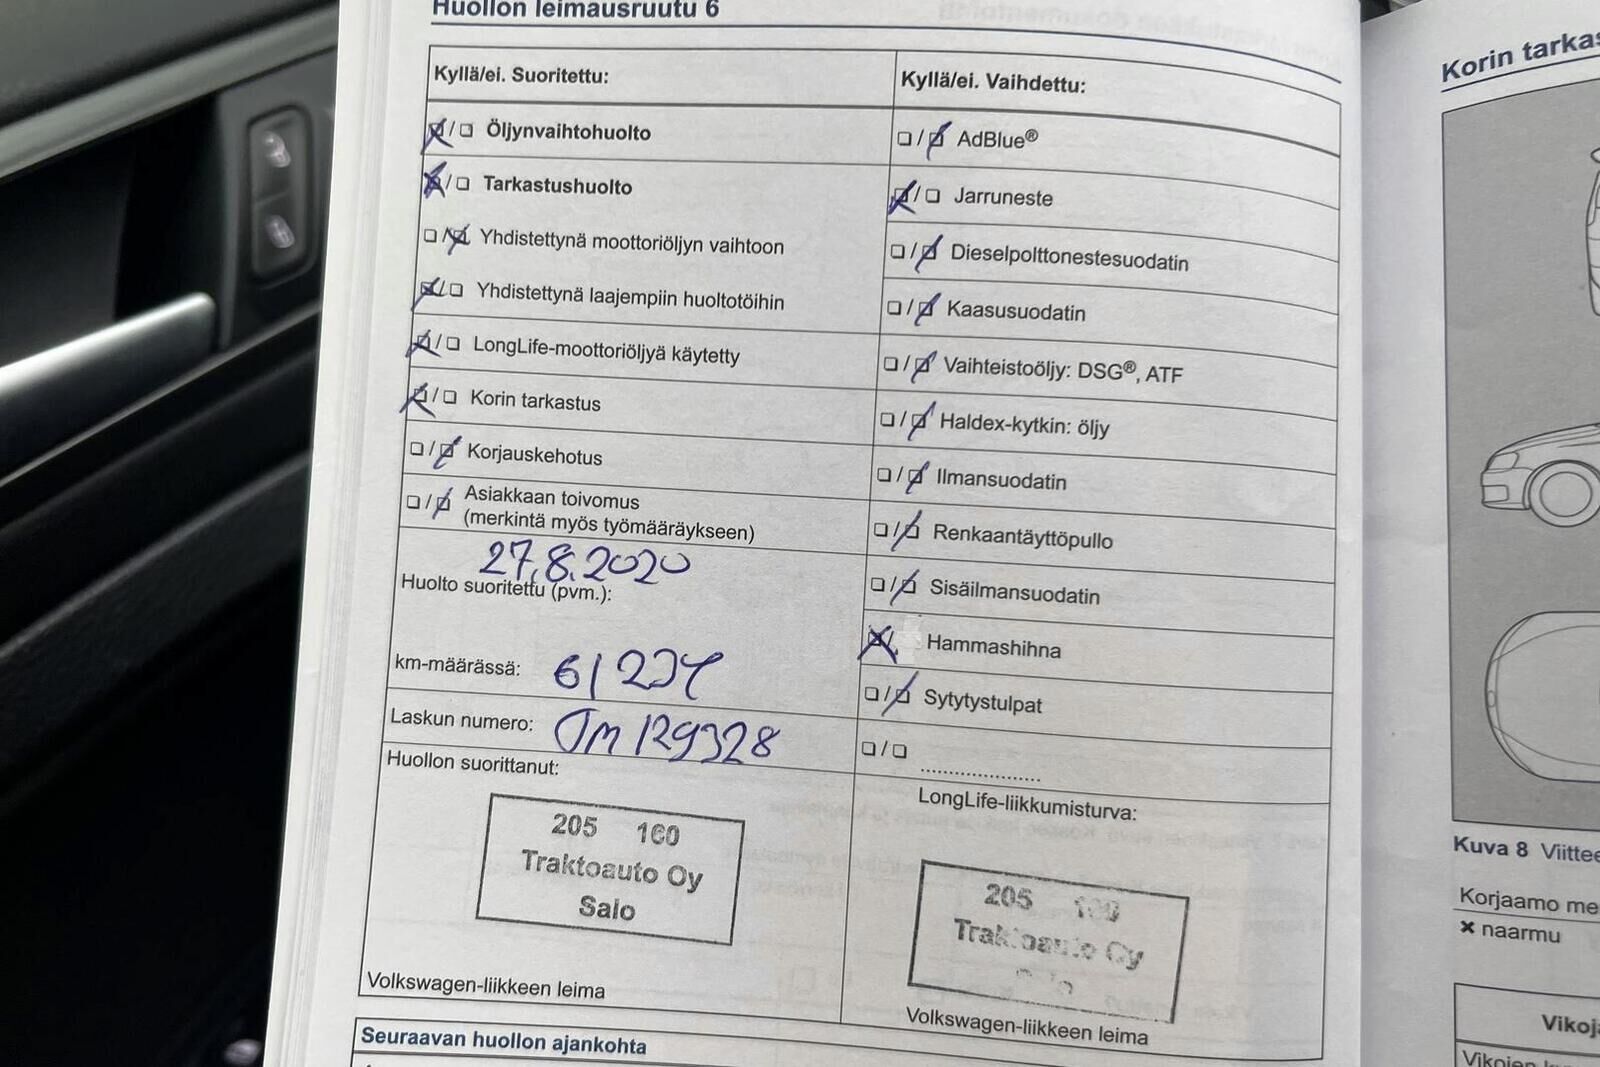 Huollon leimausruutu 6
Kyllä/ei. Suoritettu:
☒/☐ Öljynvaihtohuolto
☒/☐ Tarkastushuolto
☐/☒ Yhdistettynä moottoriöljyn vaihtoon
☒/☐ Yhdistettynä laajempiin huoltotöihin
☒/☐ LongLife-moottoriöljyä käytetty
☒/☐ Korin tarkastus
☐/☒ Korjauskehotus
☐/☒ Asiakkaan toivomus
(merkintä myös työmääräykseen)
27.8.2020
Huolto suoritettu (pvm.):
km-määrässä:
Laskun numero:
Huollon suorittanut:
205 160
Traktoauto Oy
Salo
Volkswagen-liikkeen leima
Kyllä/ei. Vaihdettu:
☐/☒ AdBlue®
☒/☐ Jarruneste
☐/☒ Dieselpolttonestesuodatin
☐/☒ Kaasusuodatin
☐/☒ Vaihteistoöljy: DSG®, ATF
☐/☒ Haldex-kytkin: öljy
☐/☒ Ilmansuodatin
☐/☒ Renkaantäyttöpullo
☐/☒ Sisäilmansuodatin
☒ Hammashihna
☐/☒ Sytytystulpat
☐/☐ ......................
LongLife-liikkumisturva:
205 160
Traktoauto Oy
Volkswagen-liikkeen leima
Seuraavan huollon ajankohta
Korin tarkas
Kuva 8 Viittee
Korjaamo me
× naarmu
Vikoj
Vikojen